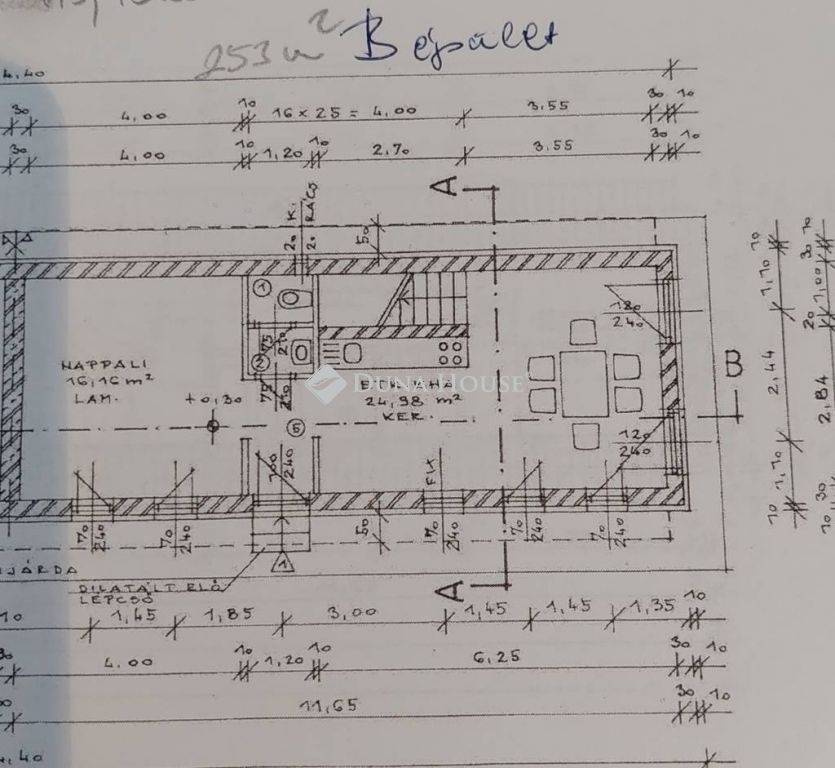 253 m² B épület
4,40
30 4,00 10 16 x 25 = 4,00 3,55 30 10
30 4,00 10 1,20 10 2,70 3,55 30 10
A
20 K.
20 RÁCS
50
1
75
210
2
75
210
180
240
NAPPALI
16,16 m²
LAM.
+0,30
DUNA HOUSE
24,98 m²
KER.
5
B
120
240
100
240
FIX
70
240
70
240
50
70
240
70
240
70
240
1
JÁRDA
DILATÁLT ELŐ
LÉPCSŐ
A
10 1,10 2,44 1,10 10
10 30 1,00 20 2,84 30 10
10 1,45 1,85 3,00 1,45 1,45 1,35 10
30 4.00 10 1,20 10 6,25 30 10
11,65 30 10
4,40